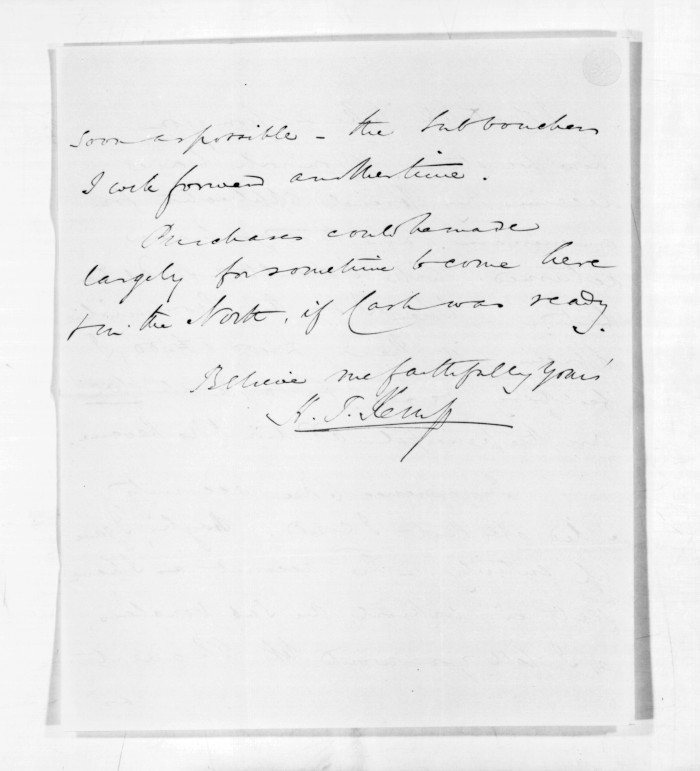 soon as possible – the Subvouchers
I will forward another time.
Purchases could be made
largely for sometime to come here
& in the North, if Cash was ready.
Believe me faithfully yours
H. T. Kemp